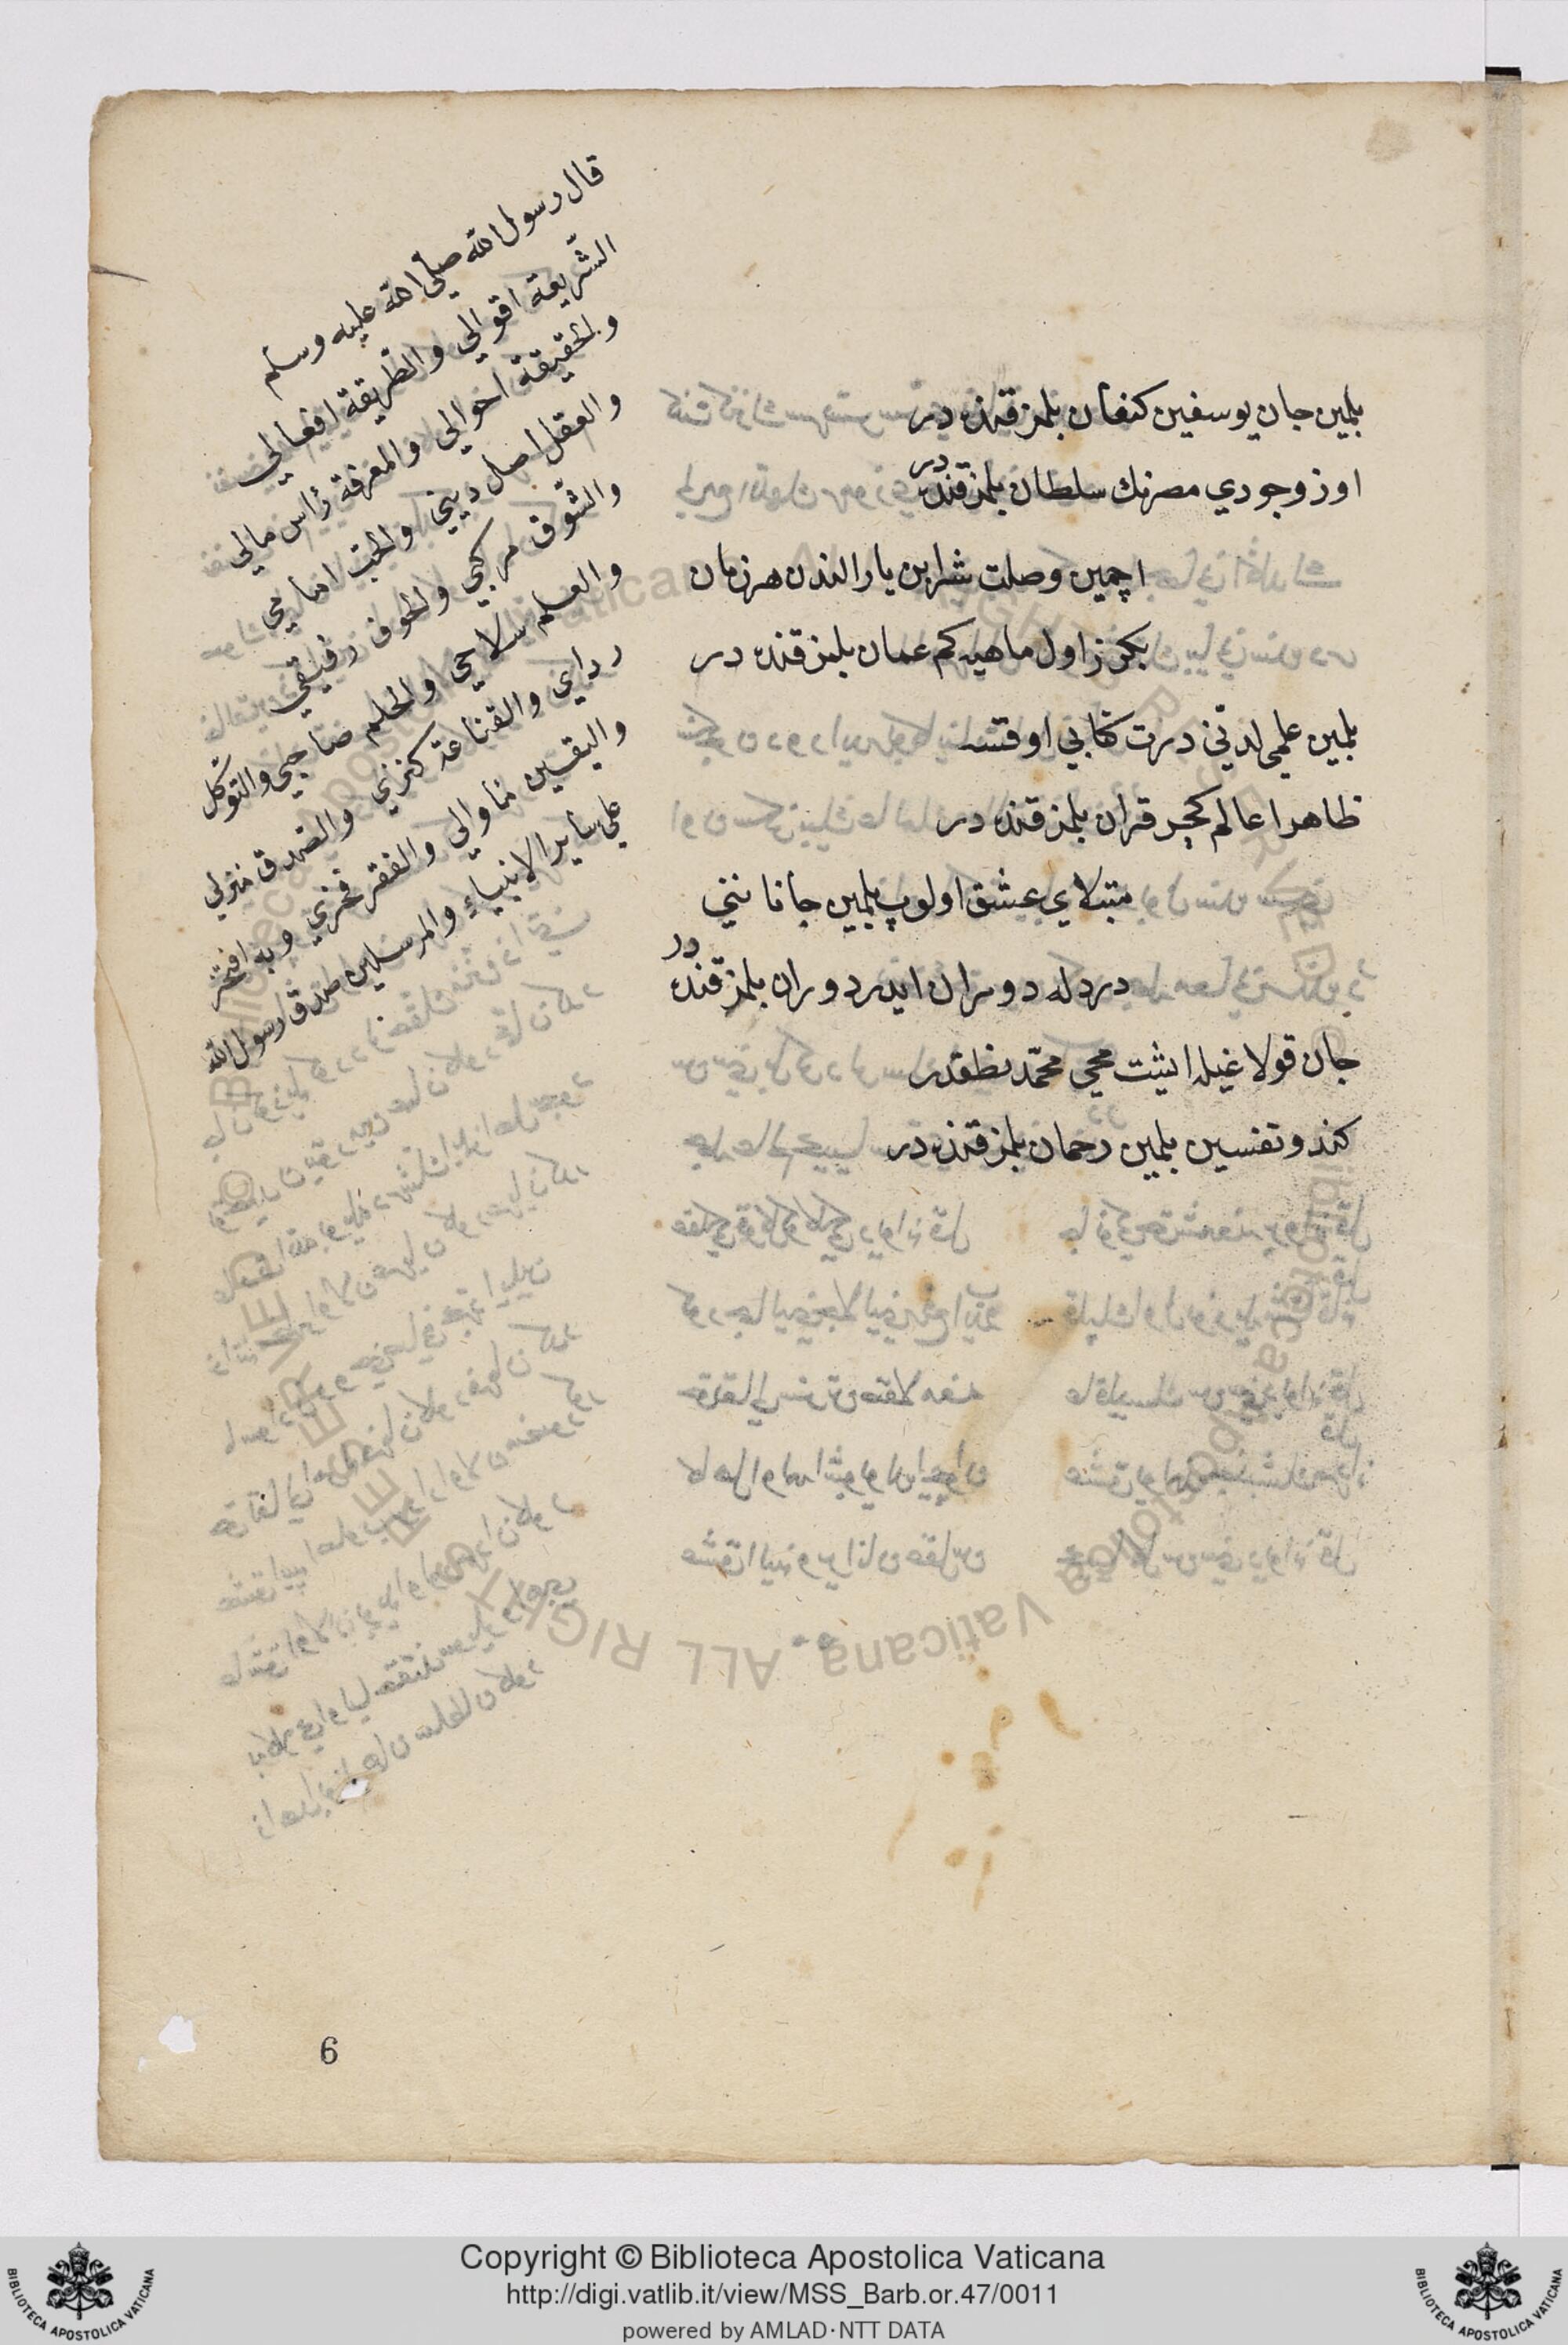 بلمين جان يوسفين كنعان بلمز قنده در
اوز وجودي مصرنك سلطان بلمز قنده در
اچمين وصلت شرابن يار الندن هر زمان
بحر زاول ماهيه كم عمان بلمز قنده در
بلمين علمي لدنّي درت كتابي اوقسه
ظاهرا عالم كچر قران بلمز قنده در
مبتلاي عشق اولوب بلمين جانانني
درد له دوران ايدر دوران بلمز قنده در
جان قولاغيله ايشت محيي محمّد نطقدر
كندو نفسين بلمين رحمان بلمز قنده در
قال رسول الله صلّى الله عليه وسلم
الشّريعة اقوالي والطّريقة افعالي
والحقيقة احوالي والمعرفة رأس مالي
والعقل اصل ديني والحبّ اساسي
والشّوق مركبي والخوف رفيقي
والعلم سلاحي والحلم صاحبي والتّوكّل
رداي والقناعة كنزي والصّدق منزلي
واليقين مأوالي والفقر فخري وبه افتخر
على ساير الانبياء والمرسلين صدق رسول الله
6
Copyright © Biblioteca Apostolica Vaticana
http://digi.vatlib.it/view/MSS_Barb.or.47/0011
powered by AMLAD·NTT DATA
BIBLIOTECA APOSTOLICA VATICANA
BIBLIOTECA APOSTOLICA VATICANA